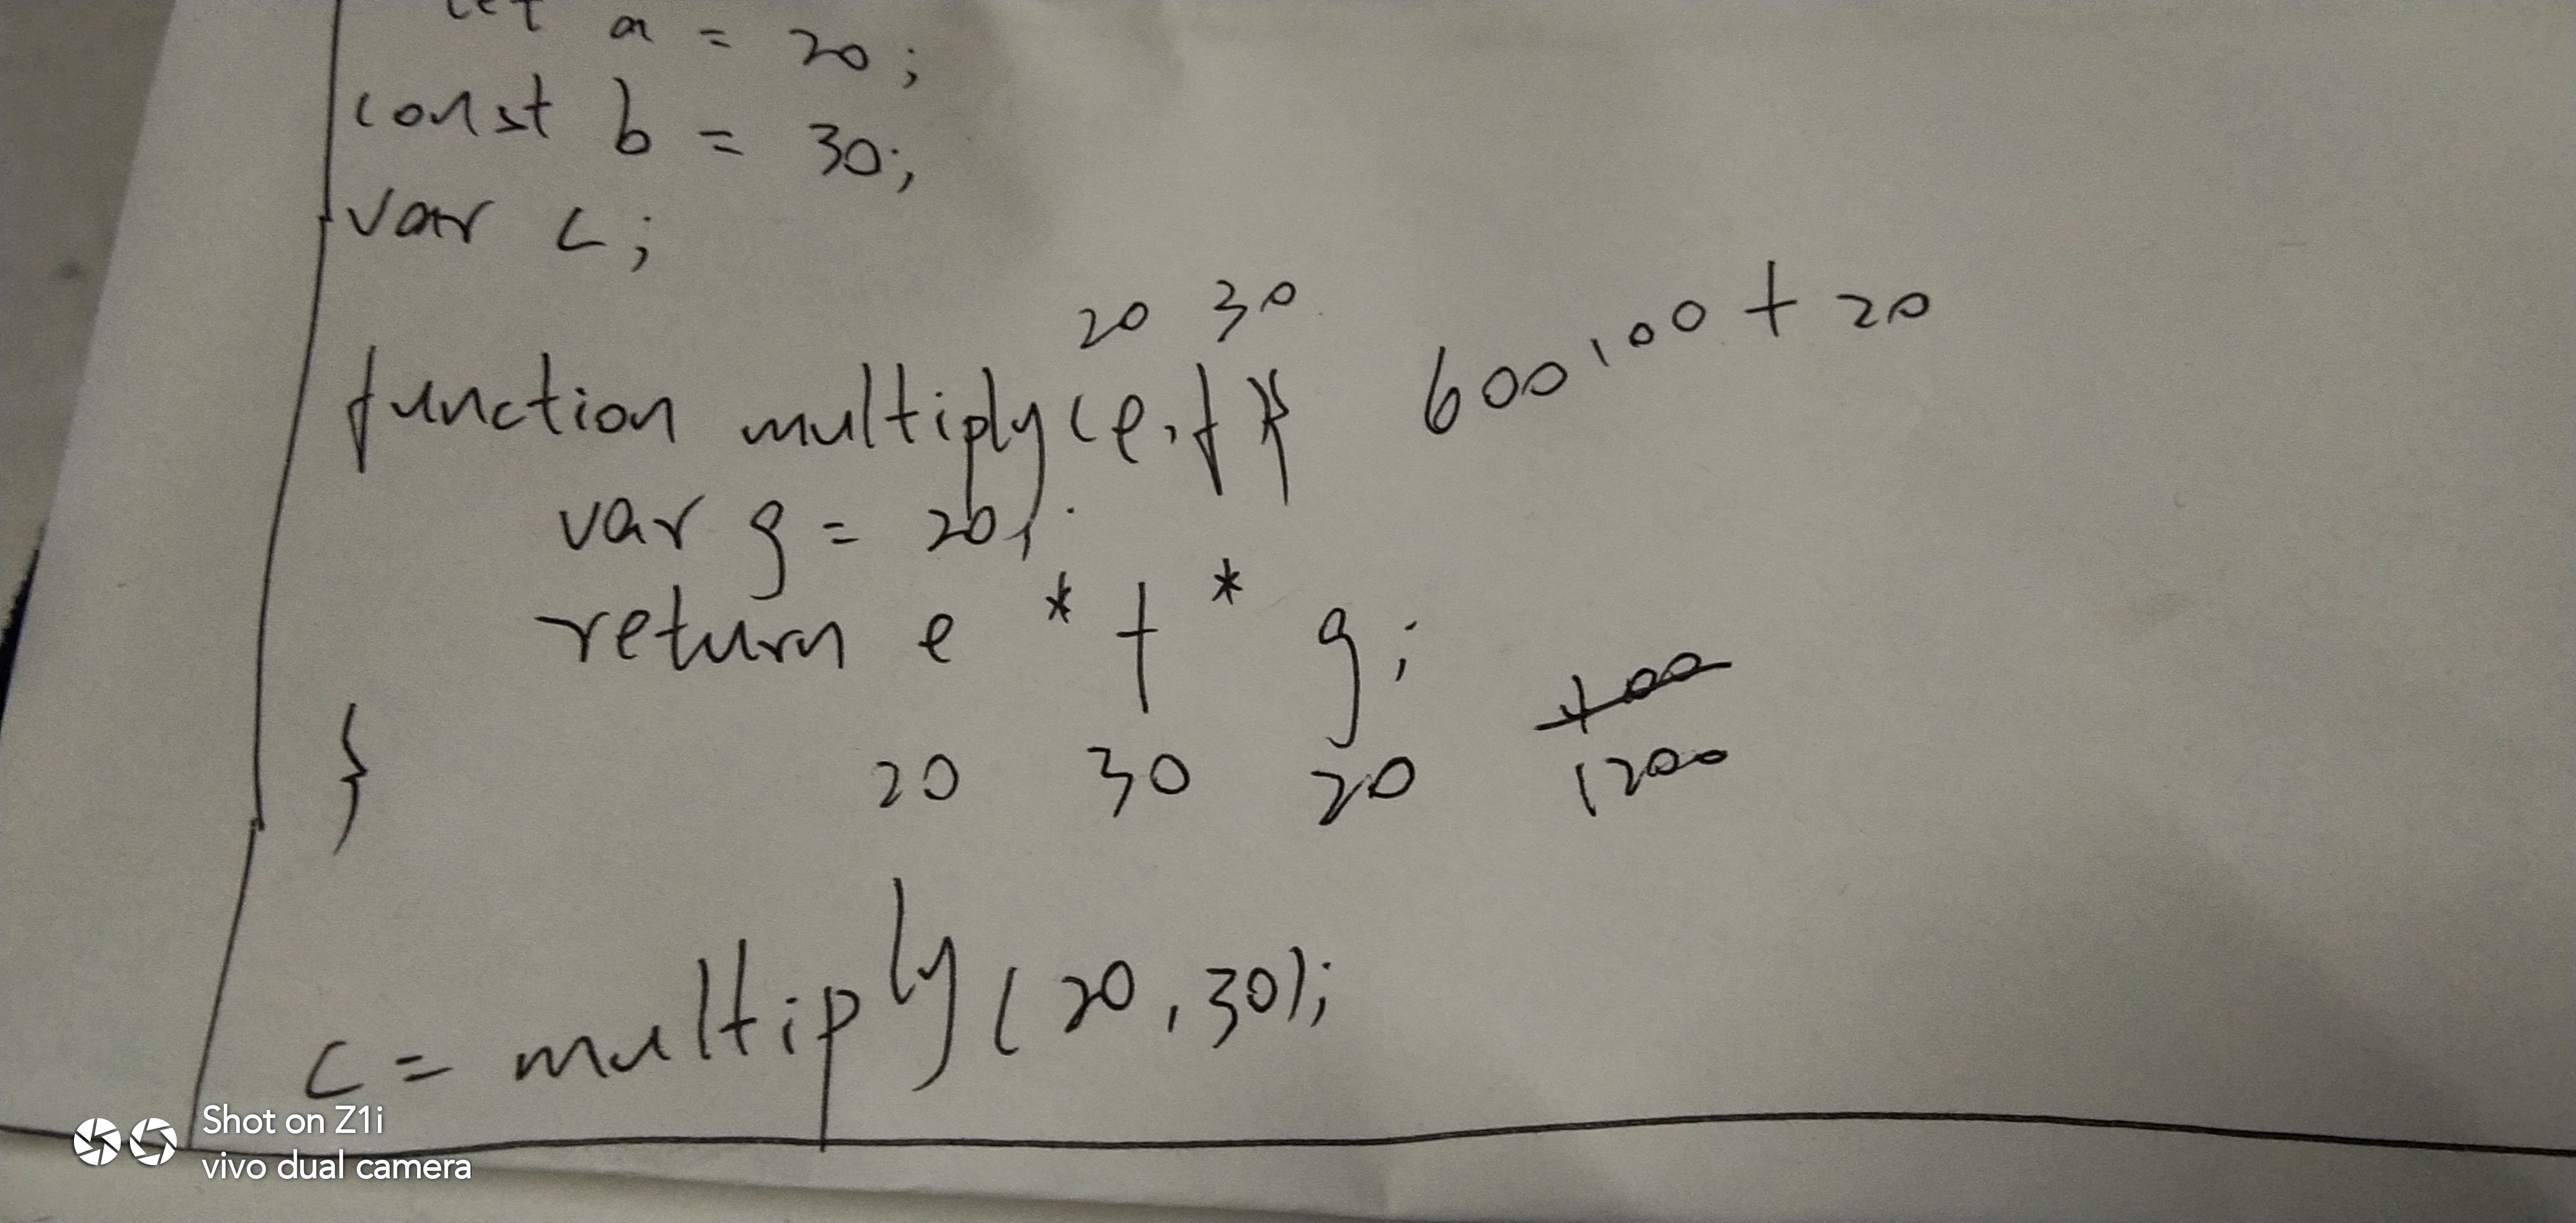 let a = 20;
const b = 30;
var c;
20 30
function multiply(e,f){ 600,00 + 20
var g = 20;
return e * f * g;
}
20 30 20 1200
c = multiply(20,30);
Shot on Z1i
vivo dual camera